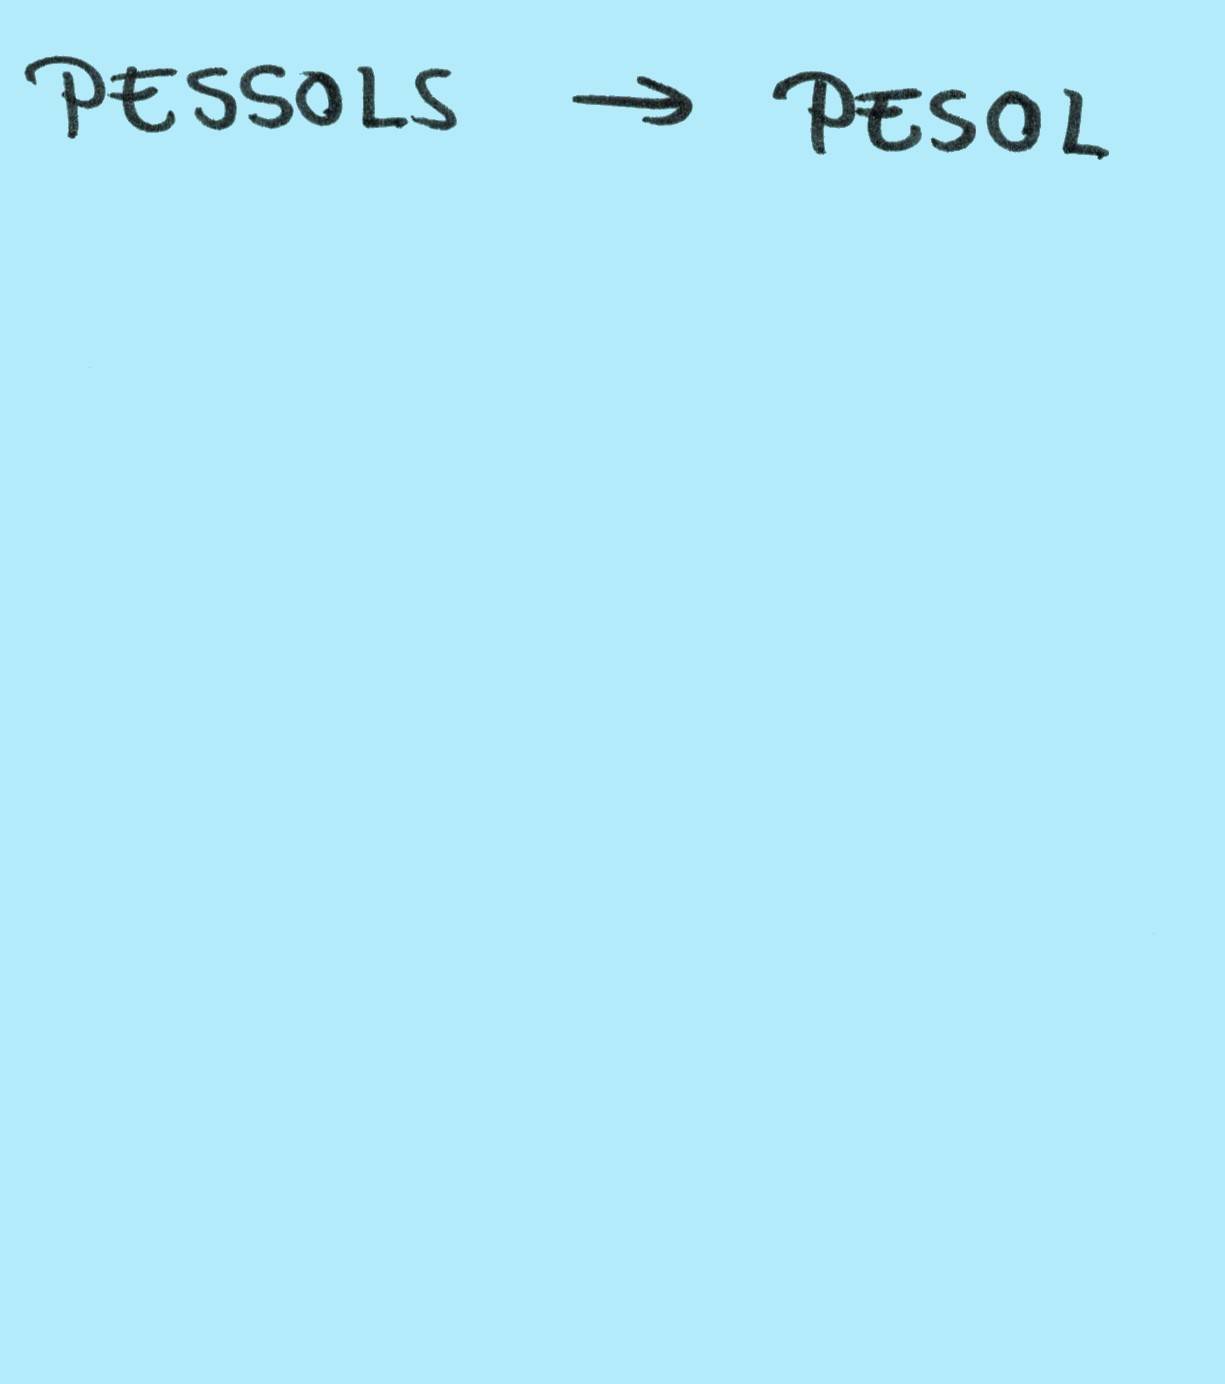 PESSOLS → PESOL